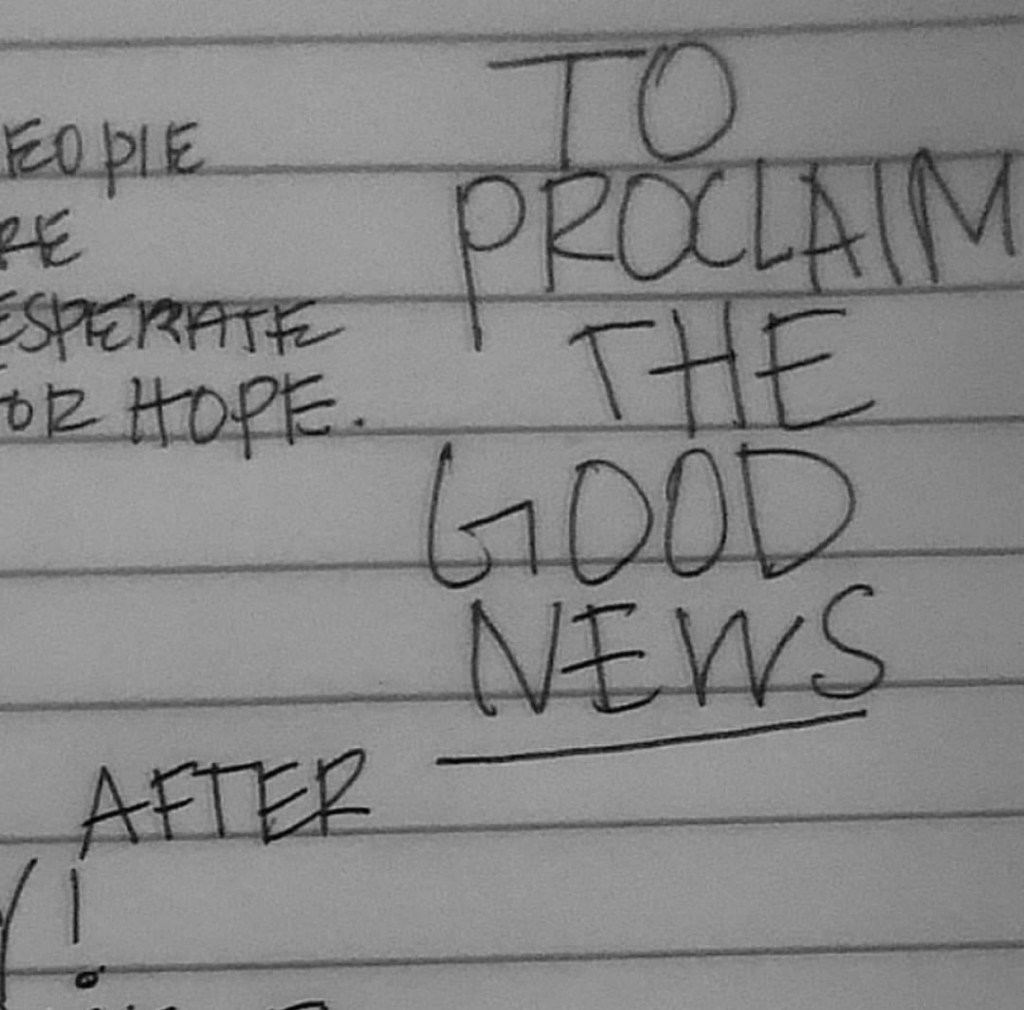 EOPlE
RE
ESPERATE
FOR HOPE.
TO
PROCLAIM
THE
GOOD
NEWS
AFTER
!